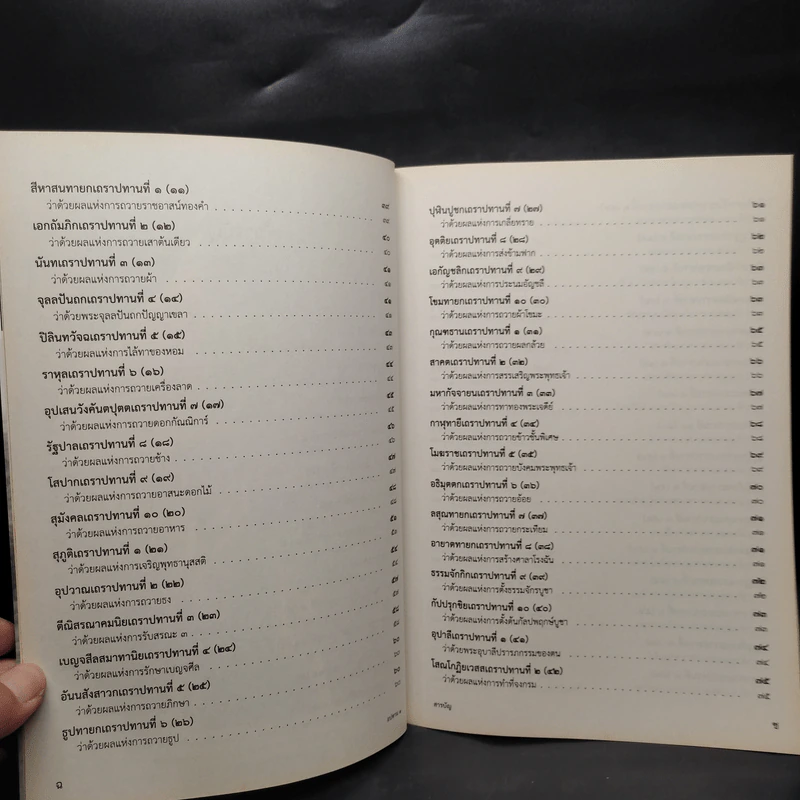 สีหาสนทายกเถราปทานที่ ๑ (๑๑) ๓๙
ว่าด้วยผลแห่งการถวายราชอาสน์ทองคำ ๓๙
เอกถัมภิกเถราปทานที่ ๒ (๑๒) ๔๐
ว่าด้วยผลแห่งการถวายเสาต้นเดียว ๔๐
นันทเถราปทานที่ ๓ (๑๓) ๔๑
ว่าด้วยผลแห่งการถวายผ้า ๔๑
จุลลปันถกเถราปทานที่ ๔ (๑๔) ๔๑
ว่าด้วยพระจุลลปันถกปัญญาเขลา ๔๑
ปิลินทวัจฉเถราปทานที่ ๕ (๑๕) ๔๓
ว่าด้วยผลแห่งการไล้ทาของหอม ๔๓
ราหุลเถราปทานที่ ๖ (๑๖) ๔๔
ว่าด้วยผลแห่งการถวายเครื่องลาด ๔๔
อุปเสนวังคันตปุตตเถราปทานที่ ๗ (๑๗) ๔๕
ว่าด้วยผลแห่งการถวายดอกกัณณิการ์ ๔๕
รัฐปาลเถราปทานที่ ๘ (๑๘) ๔๖
ว่าด้วยผลแห่งการถวายช้าง ๔๖
โสปากเถราปทานที่ ๙ (๑๙) ๔๗
ว่าด้วยผลแห่งการถวายอาสนะดอกไม้ ๔๗
สุมังคลเถราปทานที่ ๑๐ (๒๐) ๔๘
ว่าด้วยผลแห่งการถวายอาหาร ๔๘
สุภูติเถราปทานที่ ๑ (๒๑) ๕๑
ว่าด้วยผลแห่งการเจริญพุทธานุสสติ ๕๑
อุปวาณเถราปทานที่ ๒ (๒๒) ๕๔
ว่าด้วยผลแห่งการถวายธง ๕๔
ตีณิสรณาคมนิยเถราปทานที่ ๓ (๒๓) ๕๗
ว่าด้วยผลแห่งการรับสรณะ ๓ ๕๗
เบญจสีลสมาทานิยเถราปทานที่ ๔ (๒๔) ๕๘
ว่าด้วยผลแห่งการรักษาเบญจศีล ๕๘
อันนสังสาวกเถราปทานที่ ๕ (๒๕) ๖๐
ว่าด้วยผลแห่งการถวายภิกษา ๖๐
ธูปทายกเถราปทานที่ ๖ (๒๖) ๖๐
ว่าด้วยผลแห่งการถวายธูป ๖๐
ฉ
ปุฬินปูชกเถราปทานที่ ๗ (๒๗) ๖๑
ว่าด้วยผลแห่งการเกลี่ยทราย ๖๑
อุตติยเถราปทานที่ ๘ (๒๘) ๖๒
ว่าด้วยผลแห่งการส่งข้ามฟาก ๖๒
เอกัญชลิกเถราปทานที่ ๙ (๒๙) ๖๓
ว่าด้วยผลแห่งการประนมอัญชลี ๖๓
โขมทายกเถราปทานที่ ๑๐ (๓๐) ๖๓
ว่าด้วยผลแห่งการถวายผ้าโขมะ ๖๓
กุณฑธานเถราปทานที่ ๑ (๓๑) ๖๕
ว่าด้วยผลแห่งการถวายผลกล้วย ๖๕
สาคตเถราปทานที่ ๒ (๓๒) ๖๖
ว่าด้วยผลแห่งการสรรเสริญพระพุทธเจ้า ๖๖
มหากัจจายนเถราปทานที่ ๓ (๓๓) ๖๗
ว่าด้วยผลแห่งการทาทองพระเจดีย์ ๖๗
กาฬุทายีเถราปทานที่ ๔ (๓๔) ๖๘
ว่าด้วยผลแห่งการถวายข้าวชั้นพิเศษ ๖๘
โมฆราชเถราปทานที่ ๕ (๓๕) ๖๙
ว่าด้วยผลแห่งการถวายบังคมพระพุทธเจ้า ๖๙
อธิมุตตกเถราปทานที่ ๖ (๓๖) ๗๐
ว่าด้วยผลแห่งการถวายอ้อย ๗๐
ลสุณทายกเถราปทานที่ ๗ (๓๗) ๗๑
ว่าด้วยผลแห่งการถวายกระเทียม ๗๑
อายาคทายกเถราปทานที่ ๘ (๓๘) ๗๑
ว่าด้วยผลแห่งการสร้างศาลาโรงฉัน ๗๑
ธรรมจักกิกเถราปทานที่ ๙ (๓๙) ๗๒
ว่าด้วยผลแห่งการตั้งธรรมจักรบูชา ๗๒
กัปปรุกขิยเถราปทานที่ ๑๐ (๔๐) ๗๓
ว่าด้วยผลแห่งการตั้งต้นกัลปพฤกษ์บูชา ๗๓
อุปาลีเถราปทานที่ ๑ (๔๑) ๗๔
ว่าด้วยพระอุบาลีปรารภกรรมของตน ๗๔
โสณโกฏิยเวสสเถราปทานที่ ๒ (๔๒) ๗๕
ว่าด้วยผลแห่งการทำที่จงกรม ๗๕
สารบัญ
ช